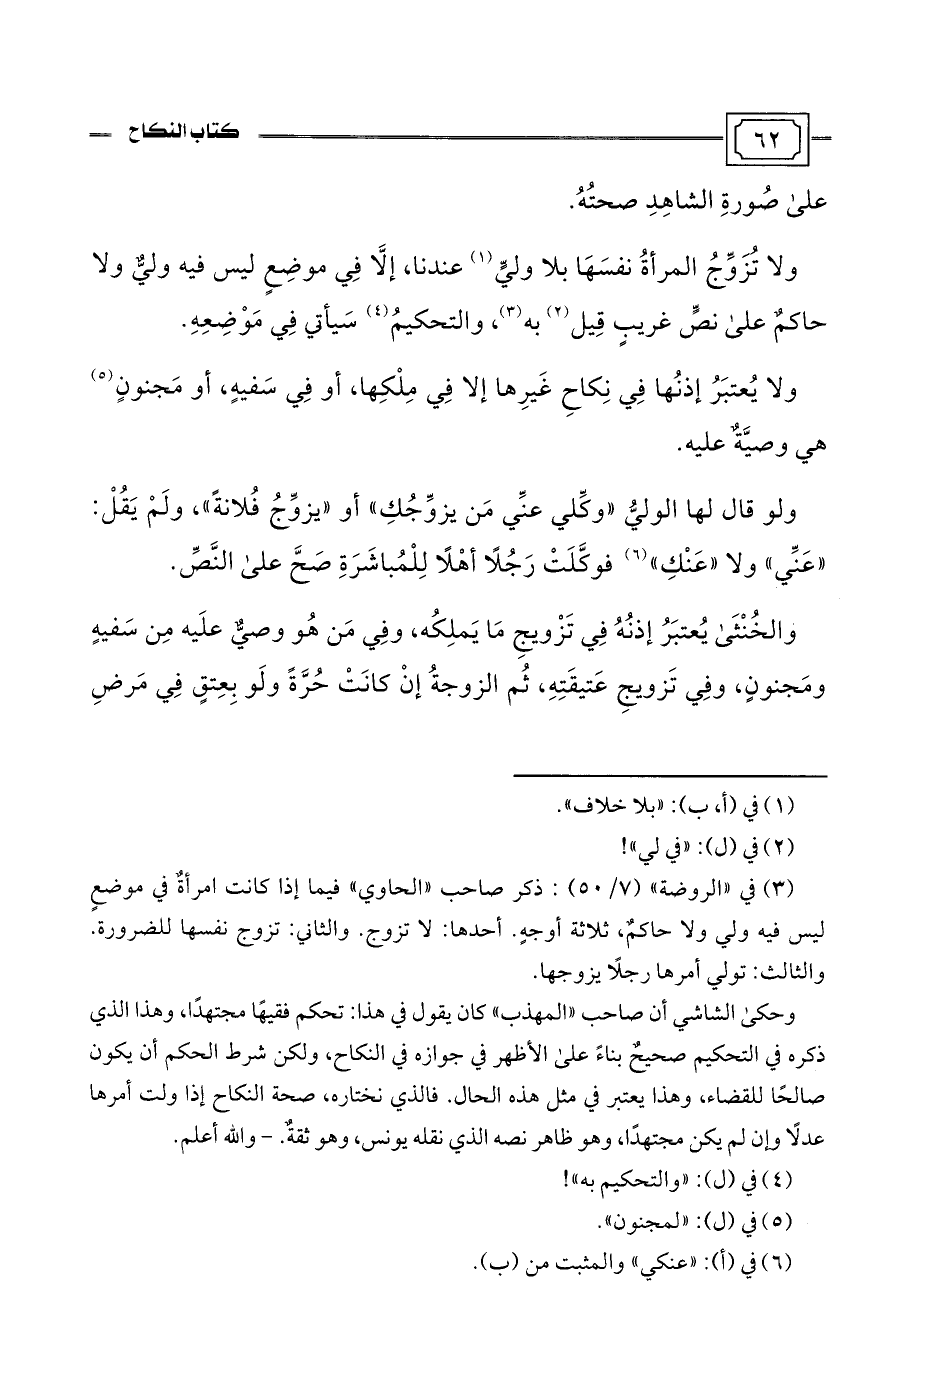 ٦٢ كتاب النكاح
علىٰ صُورةِ الشاهِدِ صحتُهُ.
ولا تُزَوِّجُ المرأةُ نفسَهَا بلا وليٍّ(١) عندنا، إلَّا فِي موضِعٍ ليس فيه وليٌّ ولا
حاكمٌ علىٰ نصٍّ غريبٍ قِيل(٢) به(٣)، والتحكيمُ(٤) سَيأتي فِي مَوْضِعِهِ.
ولا يُعتبَرُ إذنُها فِي نِكاحِ غَيرِها إلا فِي مِلْكِها، أو فِي سَفيهٍ، أو مَجنونٍ(٥)
هي وصيَّةٌ عليه.
ولو قال لها الوليُّ «وكِّلي عنِّي مَن يزوِّجُكِ» أو «يزوِّجُ فُلانةً»، ولَمْ يَقُلْ:
«عَنِّي» ولا «عَنْكِ»(٦) فوكَّلَتْ رَجُلًا أهْلًا لِلْمُباشَرَةِ صَحَّ علىٰ النَّصِّ.
والخُنْثَىٰ يُعتبَرُ إذنُهُ فِي تَزْويجِ مَا يَملِكُه، وفِي مَن هُو وصيٌّ علَيه مِن سَفيهٍ
ومَجنونٍ، وفِي تَزويجِ عَتيقَتِهِ، ثُم الزوجةُ إنْ كانَتْ حُرَّةً ولَو بِعتقٍ فِي مَرضِ
(١) في (أ، ب): «بلا خلاف».
(٢) في (ل): «في لي»!
(٣) في «الروضة» (٧/ ٥٠) : ذكر صاحب «الحاوي» فيما إذا كانت امرأةٌ في موضعٍ
ليس فيه ولي ولا حاكمٌ، ثلاثة أوجهٍ. أحدها: لا تزوج. والثاني: تزوج نفسها للضرورة.
والثالث: تولي أمرها رجلًا يزوجها.
وحكىٰ الشاشي أن صاحب «المهذب» كان يقول في هذا: تحكم فقيهًا مجتهدًا، وهذا الذي
ذكره في التحكيم صحيحٌ بناءً علىٰ الأظهر في جوازه في النكاح، ولكن شرط الحكم أن يكون
صالحًا للقضاء، وهذا يعتبر في مثل هذه الحال. فالذي نختاره، صحة النكاح إذا ولت أمرها
عدلًا وإن لم يكن مجتهدًا، وهو ظاهر نصه الذي نقله يونس، وهو ثقةٌ. - والله أعلم.
(٤) في (ل): «والتحكيم به»!
(٥) في (ل): «لمجنون».
(٦) في (أ): «عنكي» والمثبت من (ب).